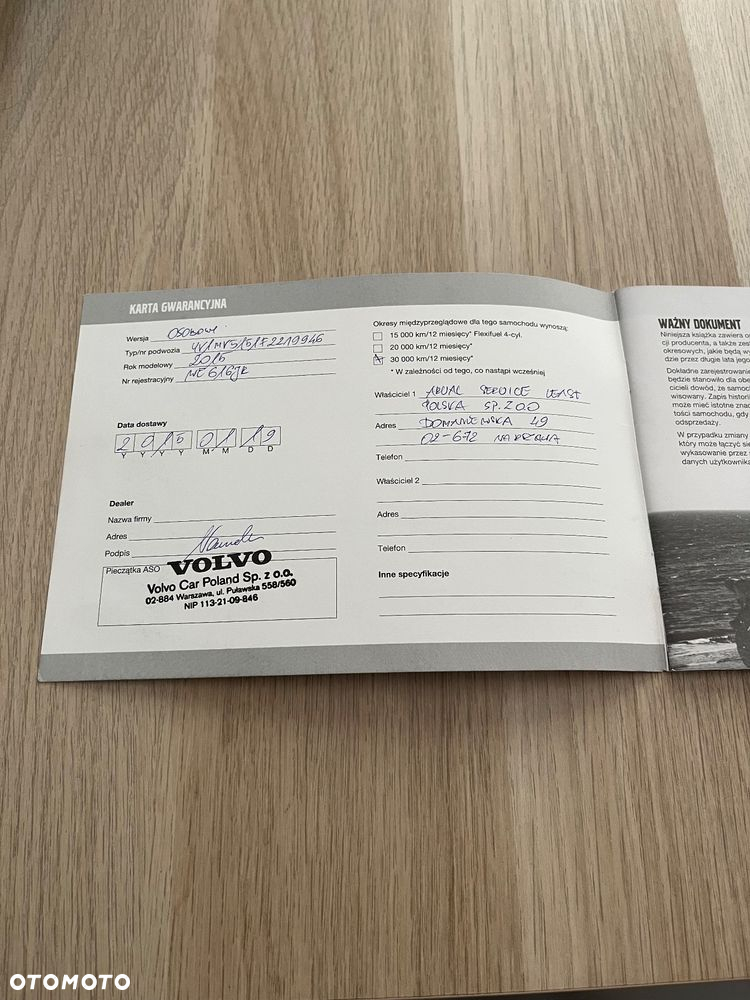 KARTA GWARANCYJNA
Wersja OSOBOWY
Typ/nr podwozia YV1MV5151F2219946
Rok modelowy 2015
Nr rejestracyjny WE616JK
Data dostawy
2 0 1 5 01 19
Y Y Y Y M M D D
Dealer
Nazwa firmy
Adres
Podpis
Pieczątka ASO
VOLVO
Volvo Car Poland Sp. z o.o.
02-884 Warszawa, ul. Puławska 558/560
NIP 113-21-09-846
Okresy międzyprzeglądowe dla tego samochodu wynoszą:
15 000 km/12 miesięcy* Flexifuel 4-cyl.
20 000 km/12 miesięcy*
30 000 km/12 miesięcy*
* W zależności od tego, co nastąpi wcześniej
Właściciel 1 SERVICE LEASE
POLSKA SP. Z O.O
Adres DOMANIEWSKA 49
02-672 WARSZAWA
Telefon
Właściciel 2
Adres
Telefon
Inne specyfikacje
WAŻNY DOKUMENT
Niniejsza książka zawiera
cji producenta, a także
okresowych, jakie będą
dzie przez długie lata
Dokładne zarejestrowanie
będzie stanowiło dla
cicieli dowód, że
wisowany. Zapis
może mieć istotne
tości samochodu, gdy
odsprzedaży.
W przypadku zmiany
który może łączyć się
wykasowanie przez
danych użytkownika
OTOMOTO